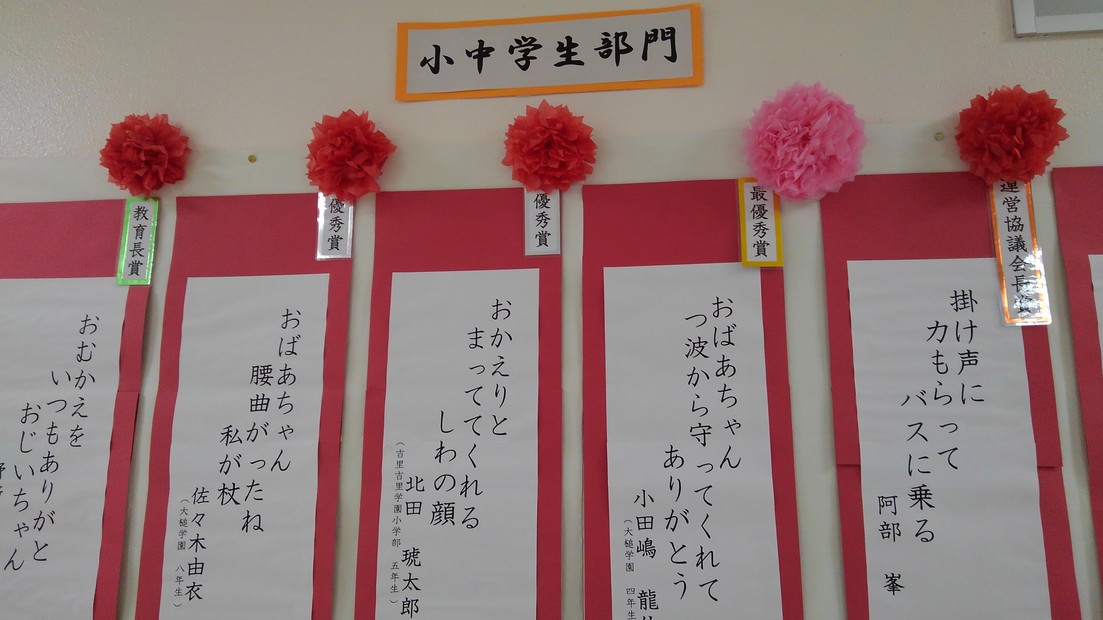 小中学生部門
運営協議会長賞
掛け声に
力もらって
バスに乗る
阿部 峯
最優秀賞
おばあちゃん
つ波から守ってくれて
ありがとう
小田嶋 龍
(大槌学園 四年生
優秀賞
おかえりと
まっててくれる
しわの顔
北田 琥太郎
(吉里吉里学園小学部 五年生)
優秀賞
おばあちゃん
腰曲がったね
私が杖
佐々木由衣
(大槌学園 八年生)
教育長賞
おむかえを
いつもありがと
おじいちゃん